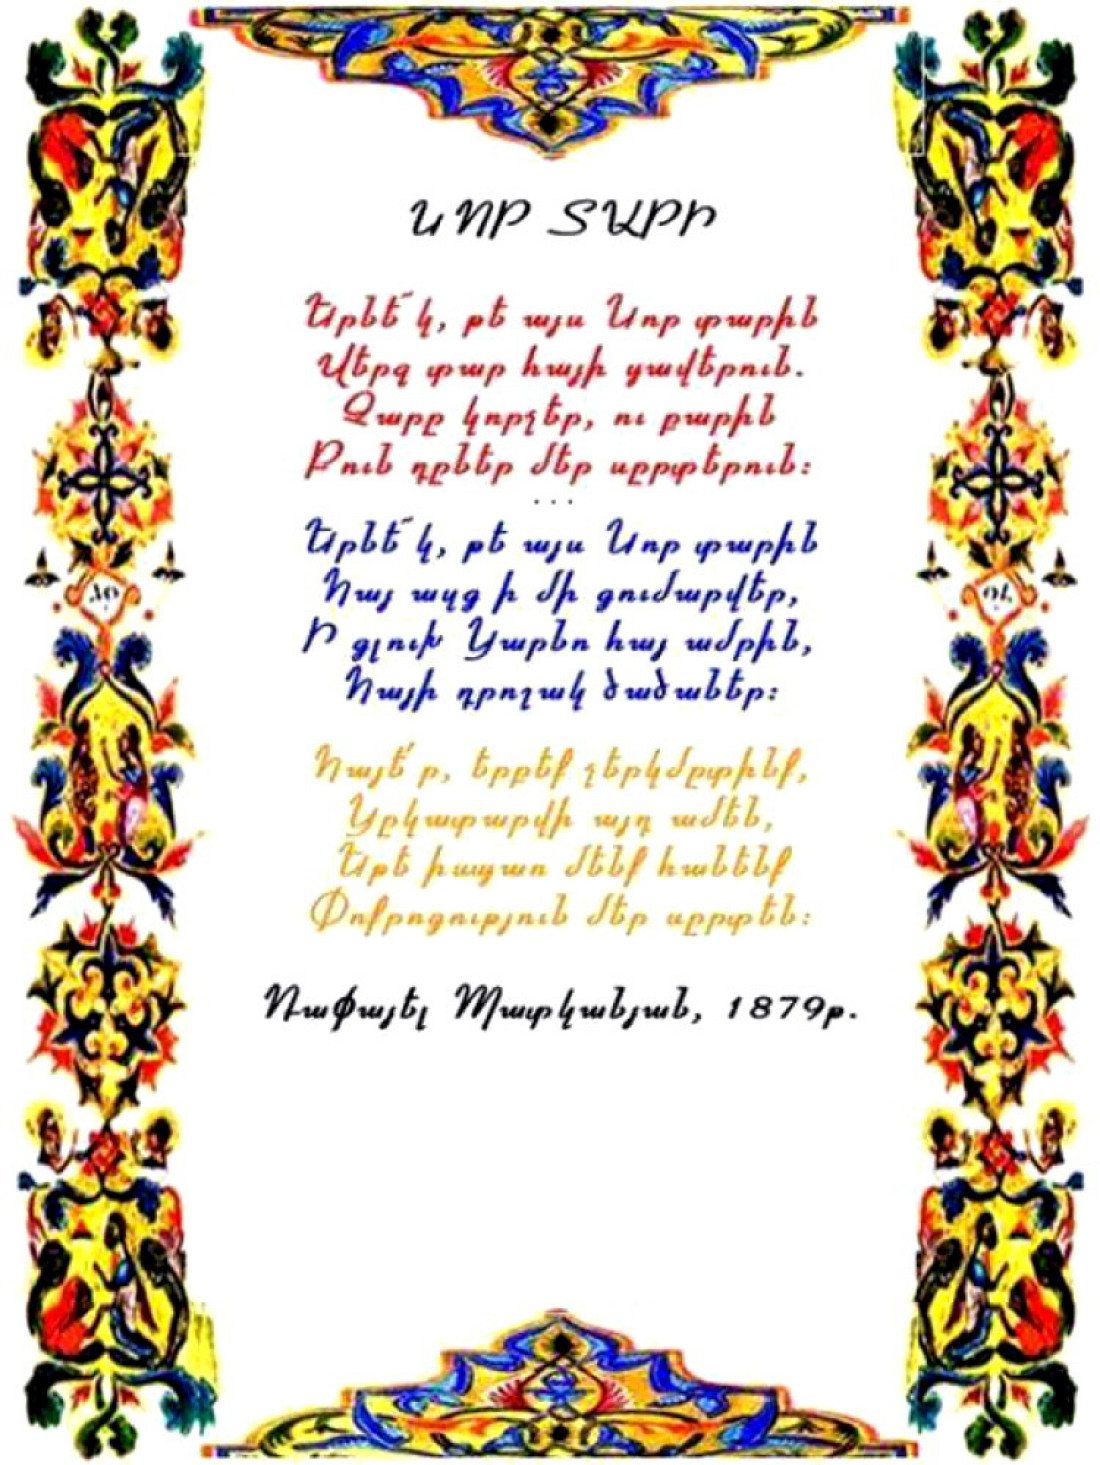 ՆՈՐ ՏԱՐԻ
Երնե՜կ, թե այս Նոր տարին
Վերջ տար հայի ցավերուն.
Չարը կորչեր, ու բարին
Բուն դըներ մեր սըրտերուն:
...
Երնե՜կ, թե այս Նոր տարին
Հայ ազգ ի մի գումարվեր,
Ի գլուխ Կարնո հայ ամրին,
Հայի դրոշակ ծածաներ:
Հայե՛ր, երբեք չերկմըտինք,
Կըկատարվի այդ ամեն,
Եթե իսպառ մենք հանենք
Փոքրոգություն մեր սըրտեն:
Ռափայել Պատկանյան, 1879թ.